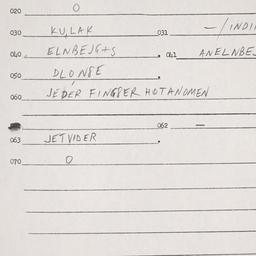 020 0
030 KULAK 031 —/INDI
040 ELNBEJG+S 041 ANELNBEJ
050 DLONSE
060 JEDER FINGPER HOTANOMEN
062 —
063 JETVIDER
070 0